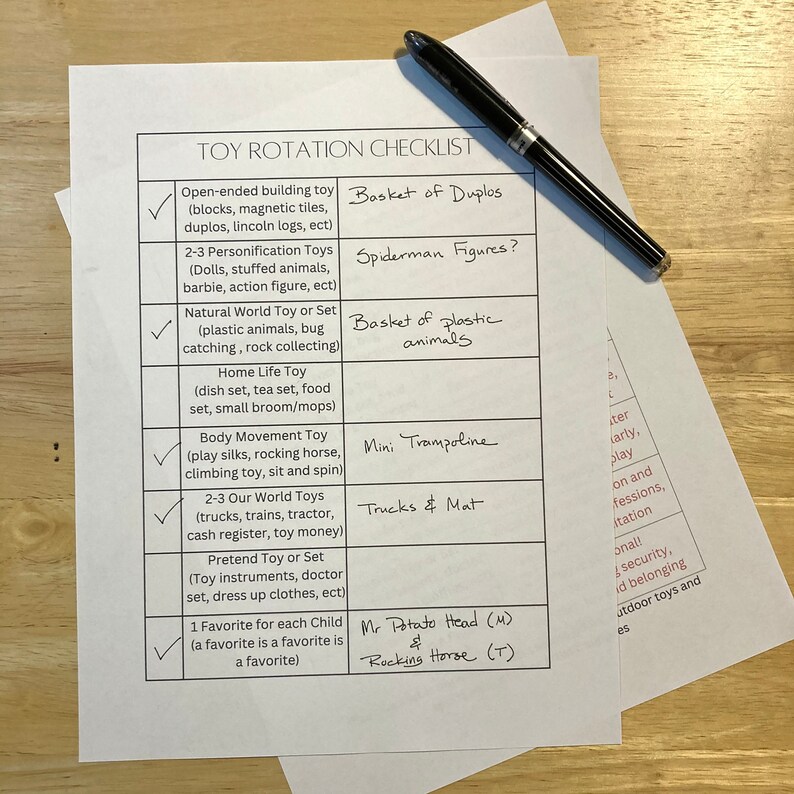 TOY ROTATION CHECKLIST
Open-ended building toy
(blocks, magnetic tiles,
duplos, lincoln logs, ect)
Basket of Duplos
2-3 Personification Toys
(Dolls, stuffed animals,
barbie, action figure, ect)
Spiderman Figures?
Natural World Toy or Set
(plastic animals, bug
catching , rock collecting)
Basket of plastic
animals
Home Life Toy
(dish set, tea set, food
set, small broom/mops)
Body Movement Toy
(play silks, rocking horse,
climbing toy, sit and spin)
Mini Trampoline
2-3 Our World Toys
(trucks, trains, tractor,
cash register, toy money)
Trucks & Mat
Pretend Toy or Set
(Toy instruments, doctor
set, dress up clothes, ect)
1 Favorite for each Child
(a favorite is a favorite is
a favorite)
Mr Potato Head (M)
&
Rocking Horse (T)
play
on and
fessions,
itation
onal!
security,
d belonging
utdoor toys and
es